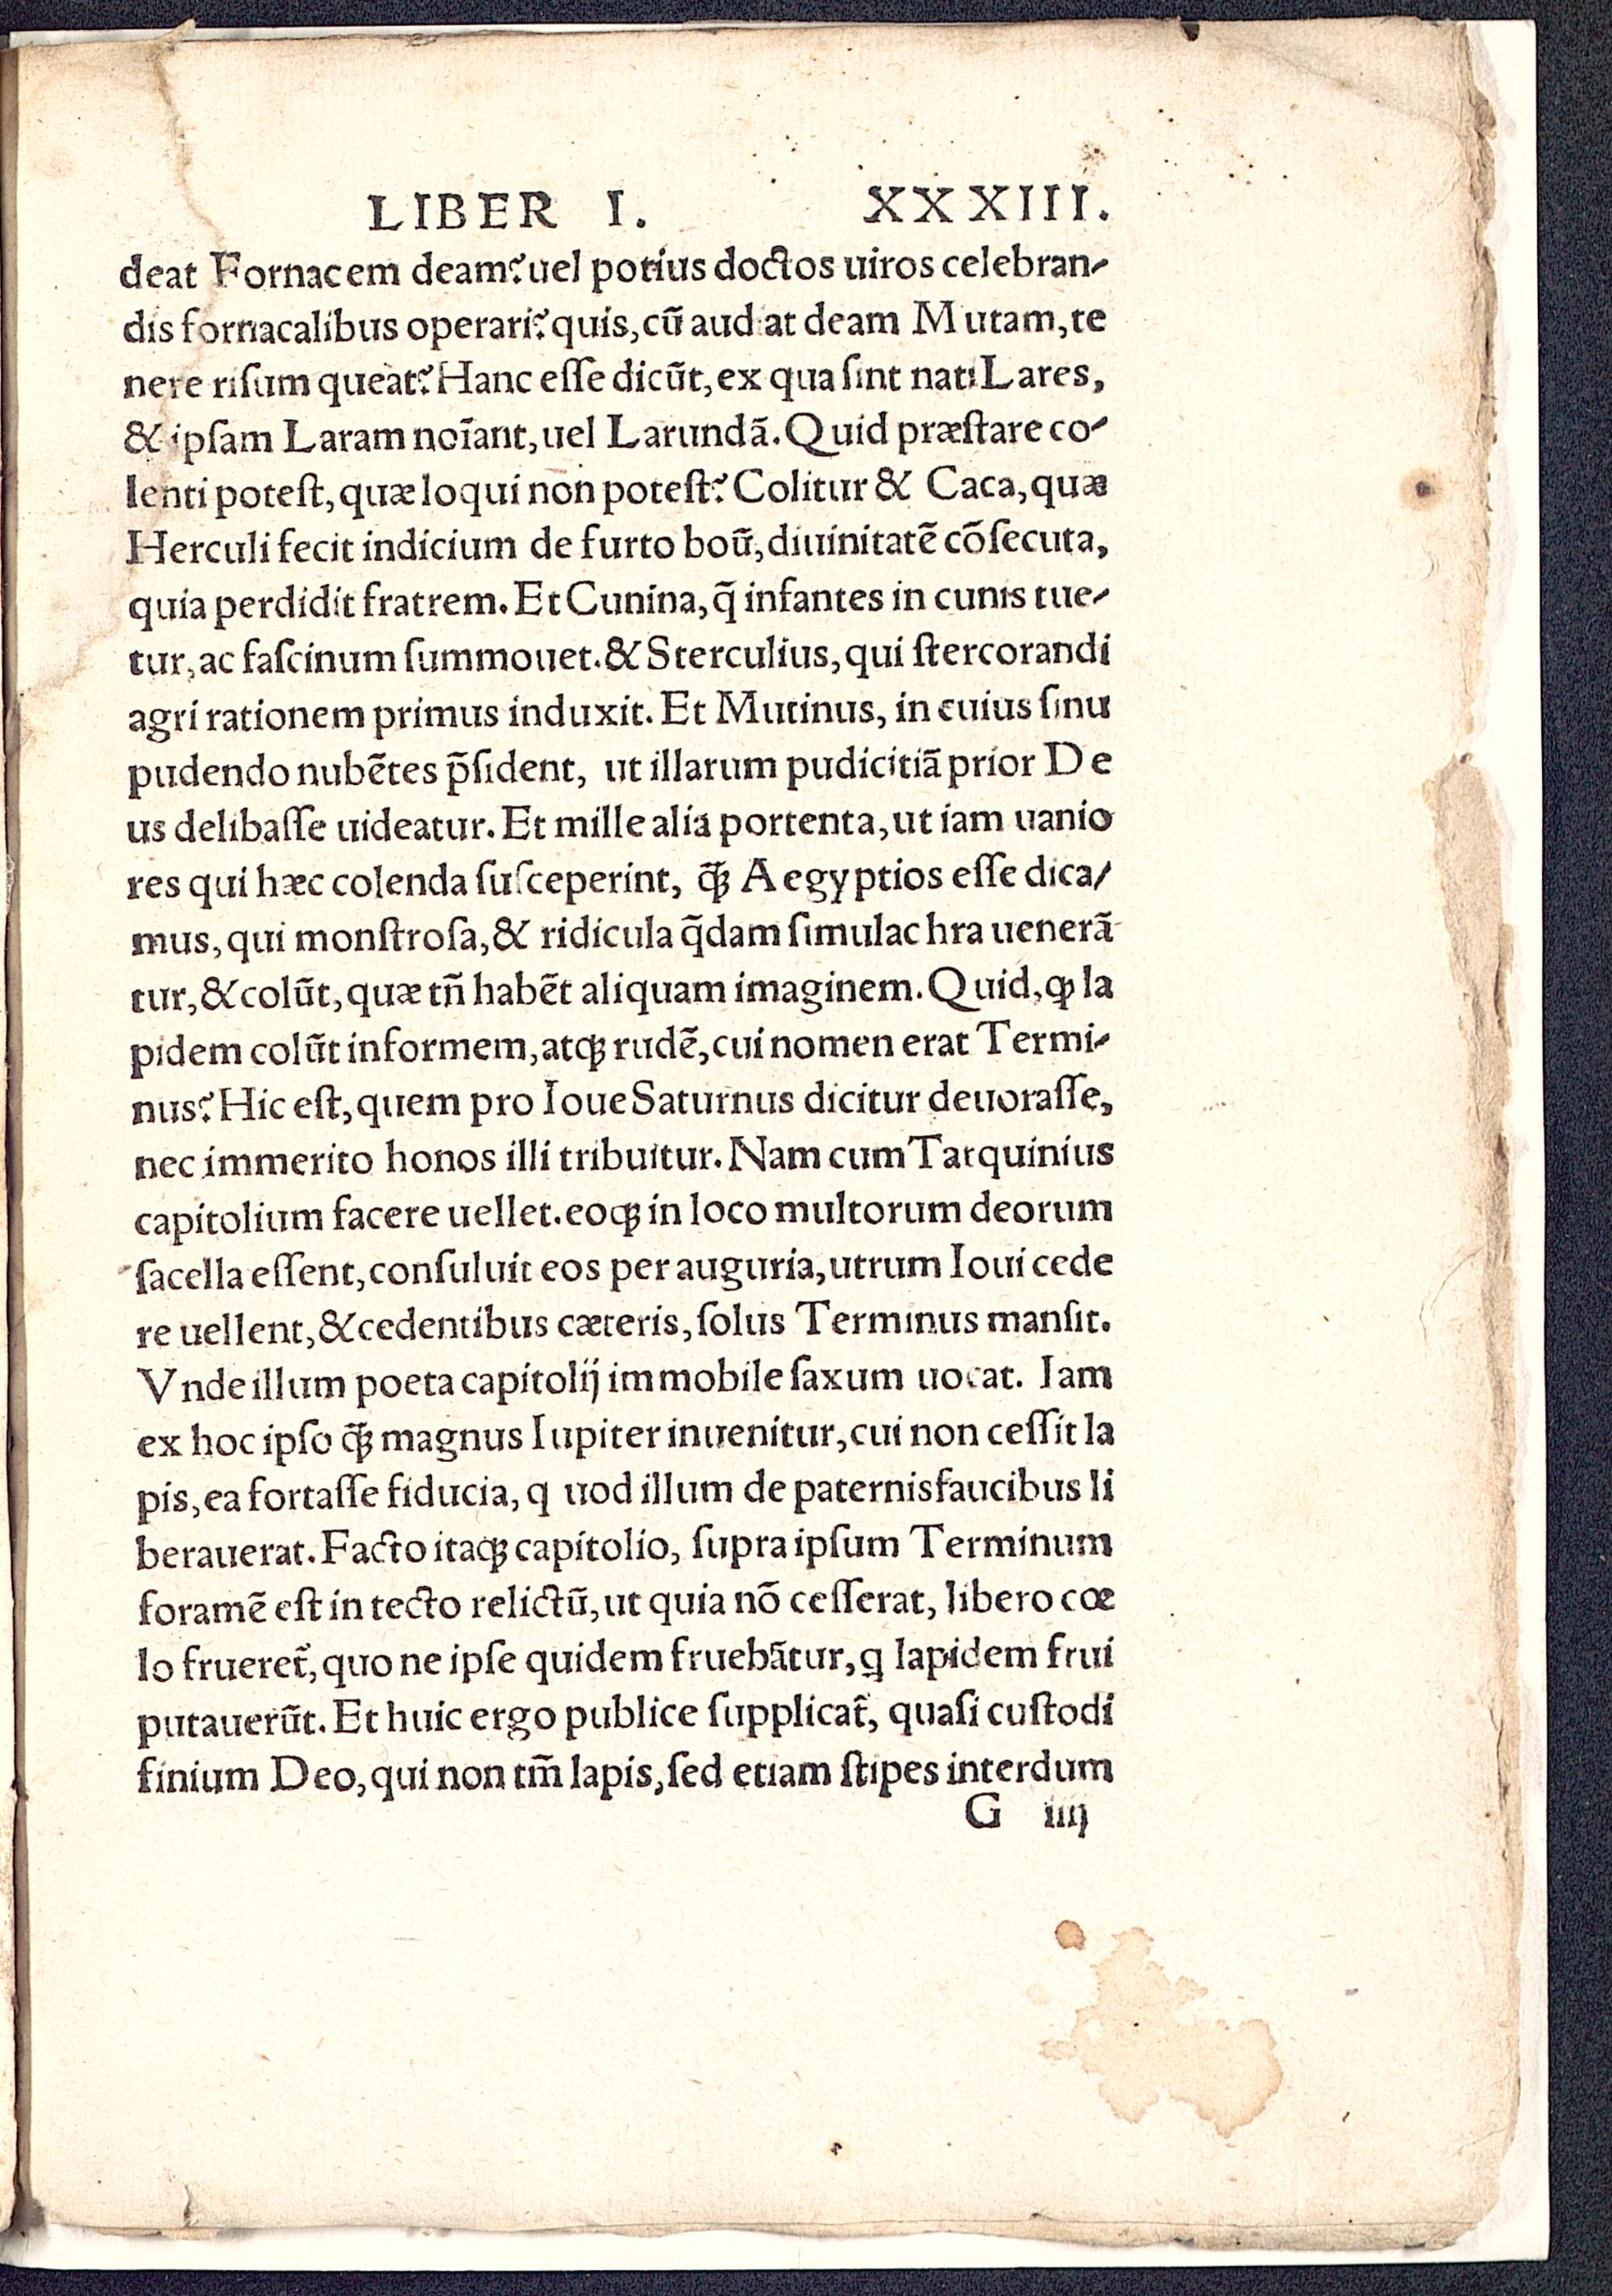 LIBER I. XXXIII.
deat Fornacem deam? uel potius doctos uiros celebran-
dis fornacalibus operari? quis, cū audiat deam Mutam, te
nere riſum queat? Hanc eſſe dicūt, ex qua ſint nati Lares,
& ipſam Laram noīant, uel Larundā. Quid præſtare co-
lenti poteſt, quæ loqui non poteſt? Colitur & Caca, quæ
Herculi fecit indicium de furto boū, diuinitatē cōſecuta,
quia perdidit fratrem. Et Cunina, q̄ infantes in cunis tue-
tur, ac faſcinum ſummouet. & Sterculius, qui ſtercorandi
agri rationem primus induxit. Et Mutinus, in cuius ſinu
pudendo nubētes p̄ſident, ut illarum pudicitiā prior De
us delibaſſe uideatur. Et mille alia portenta, ut iam uanio
res qui hæc colenda ſuſceperint, q̄ꝫ Aegyptios eſſe dica/
mus, qui monſtroſa, & ridicula q̄dam ſimulachra uenerā
tur, & colūt, quæ tn̄ habēt aliquam imaginem. Quid, ꝙ la
pidem colūt informem, atqꝫ rudē, cui nomen erat Termi-
nus? Hic eſt, quem pro Ioue Saturnus dicitur deuoraſſe,
nec immerito honos illi tribuitur. Nam cum Tarquinius
capitolium facere uellet. eoqꝫ in loco multorum deorum
ſacella eſſent, conſuluit eos per auguria, utrum Ioui cede
re uellent, & cedentibus cæteris, ſolus Terminus manſit.
Vnde illum poeta capitolij immobile ſaxum uocat. Iam
ex hoc ipſo q̄ꝫ magnus Iupiter inuenitur, cui non ceſſit la
pis, ea fortaſſe fiducia, q uod illum de paternis faucibus li
berauerat. Facto itaqꝫ capitolio, ſupra ipſum Terminum
foramē eſt in tecto relictū, ut quia nō ceſſerat, libero cœ
lo frueret̄, quo ne ipſe quidem fruebātur, ꝗ lapidem frui
putauerūt. Et huic ergo publice ſupplicat̄, quaſi cuſtodi
finium Deo, qui non tm̄ lapis, ſed etiam ſtipes interdum
G iiij